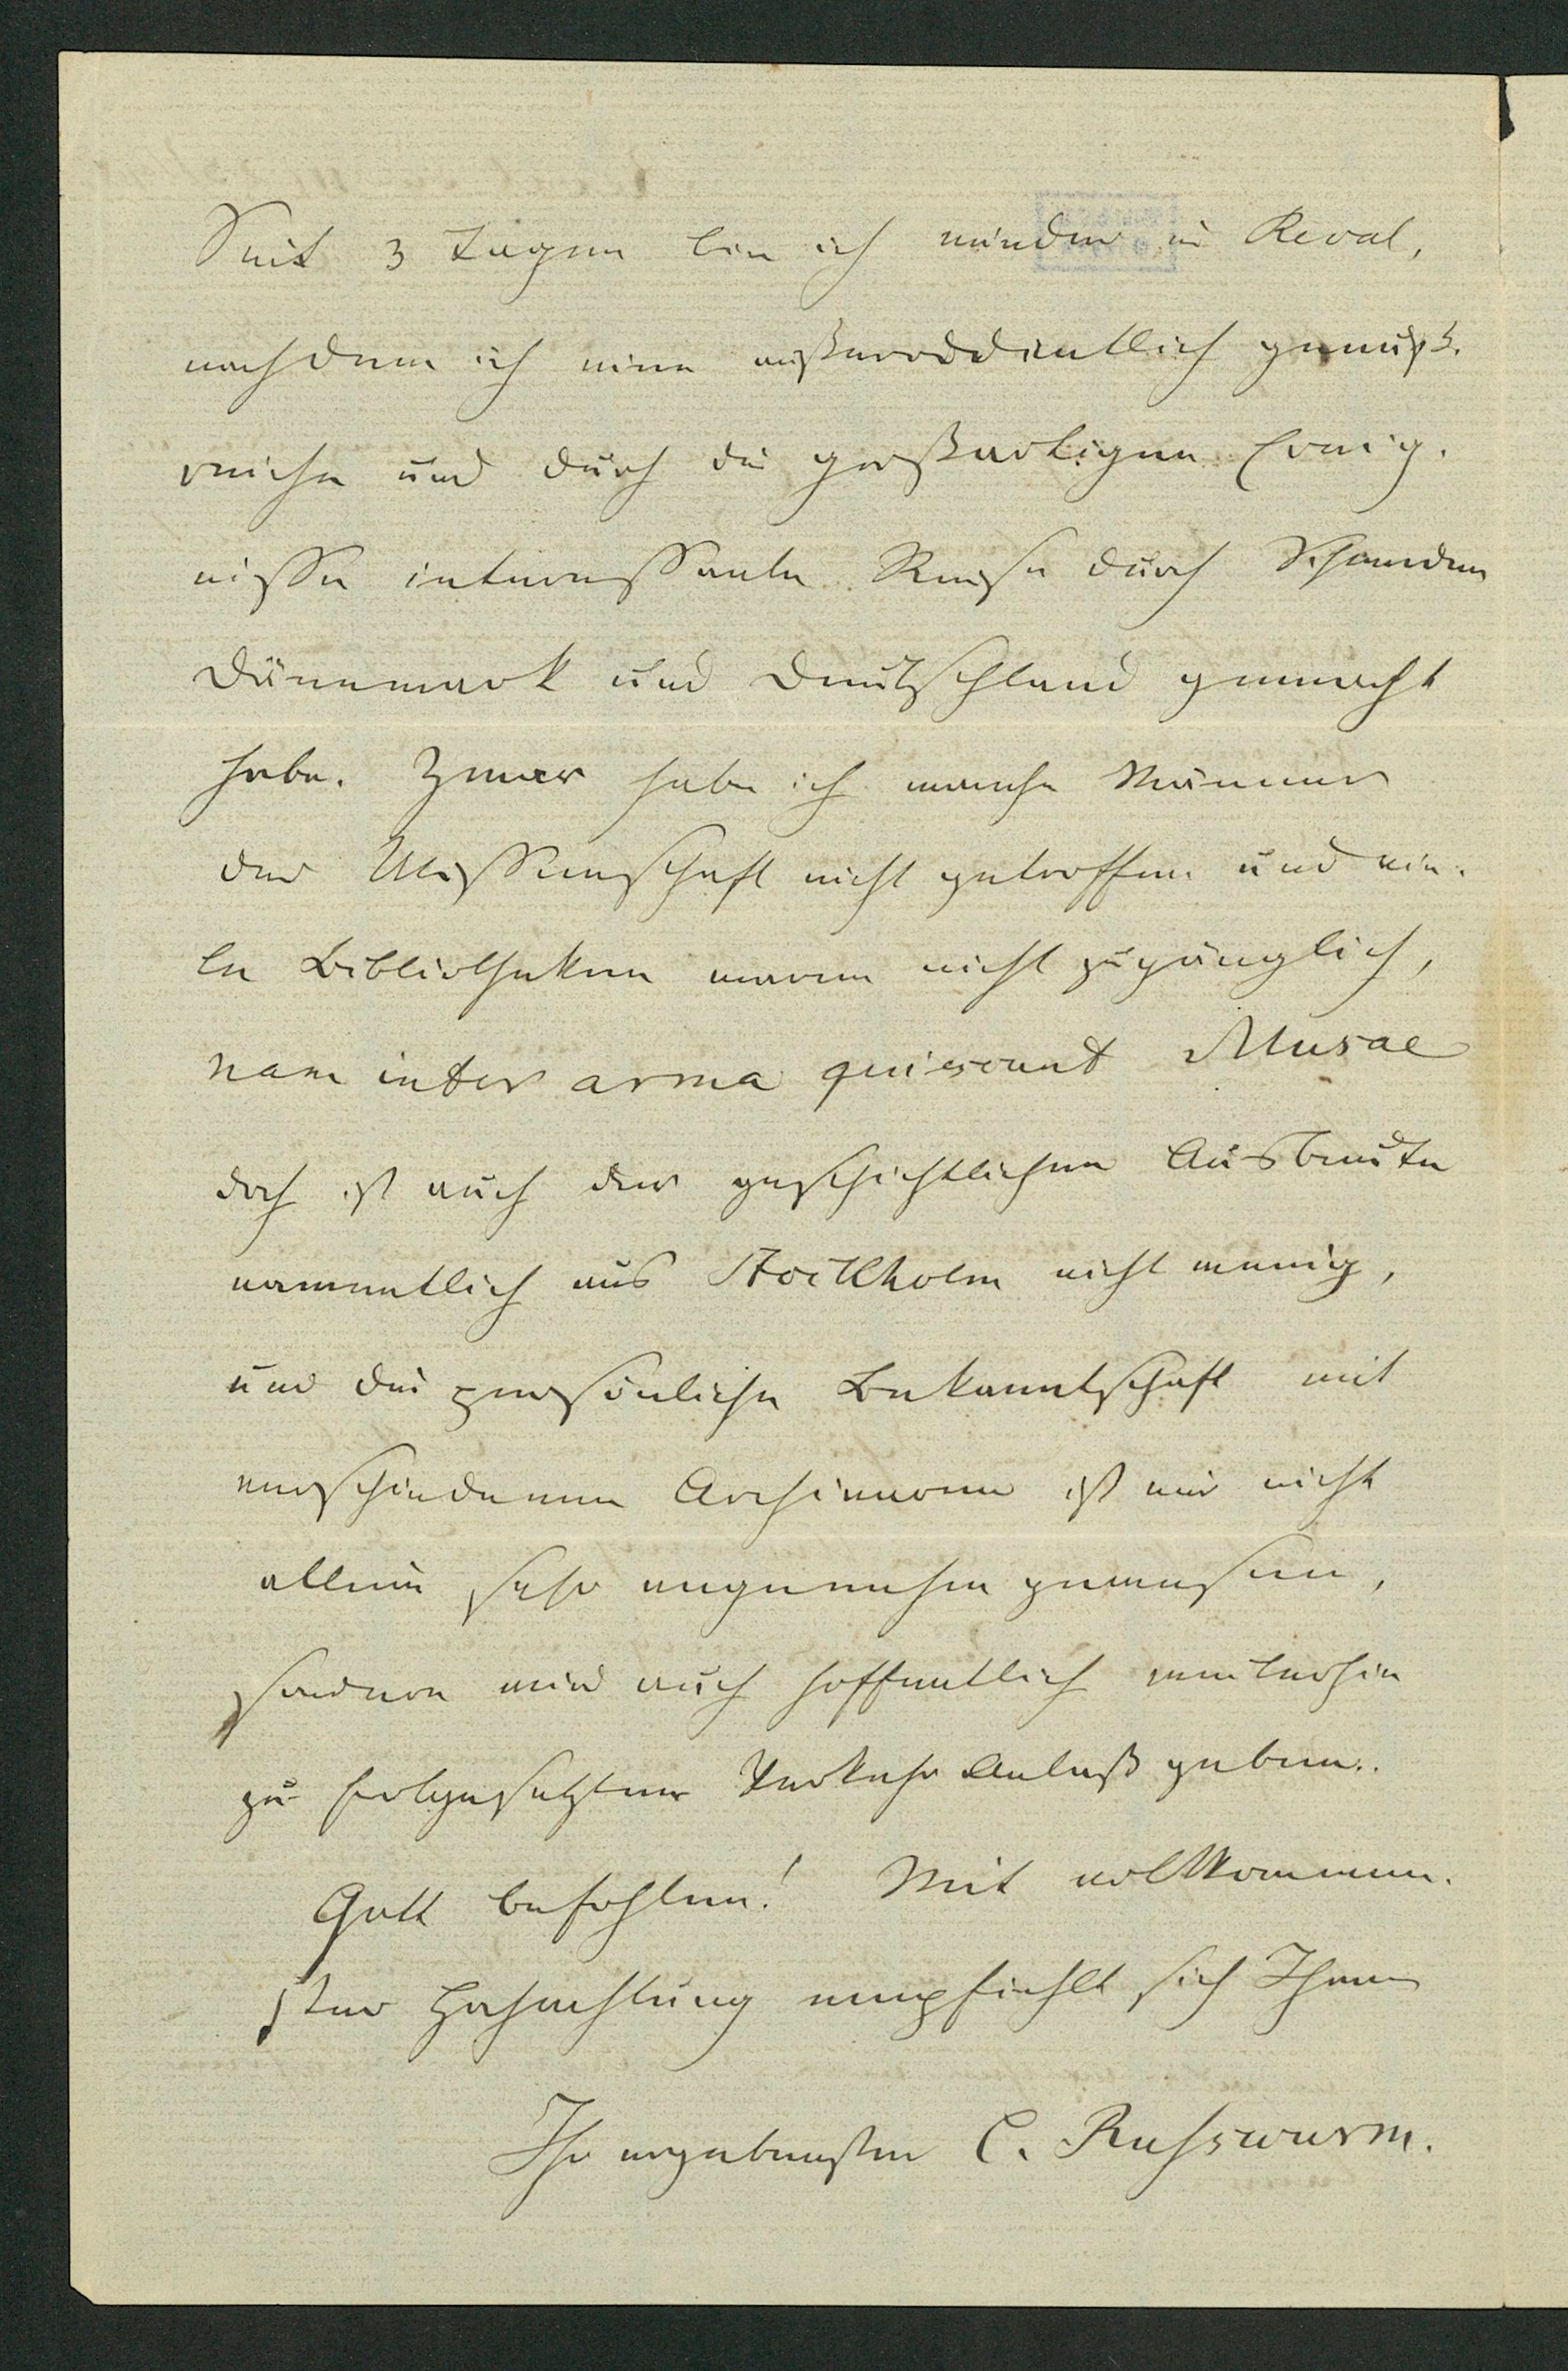 Seit 3 Tagen bin ich wieder in Reval,
nachdem ich eine außerordentlich genuß-
reiche und durch die großartigen Ereig-
nisse interessante Reise durch Schweden
Dänemark und Deutschland gemacht
habe. Zwar habe ich manche Männer
der Wissenschaft nicht getroffen und vie-
le Bibliotheken waren nicht zugänglich,
nam inter arma quiescunt Musae
doch ist auch der geschichtlichen Ausbeute
namentlich aus Stockholm nicht wenig,
und die persönliche Bekanntschaft mit
verschiedenen Archivaren ist mir nicht
allein sehr angenehm gewesen,
sondern wird auch hoffentlich weiterhin
zu fortgesetztem Verkehr Anlaß geben.
Gott befohlen! Mit vollkommen-
ster Hochachtung empfiehlt sich Ihnen
Ihr ergebenster C. Russwurm.